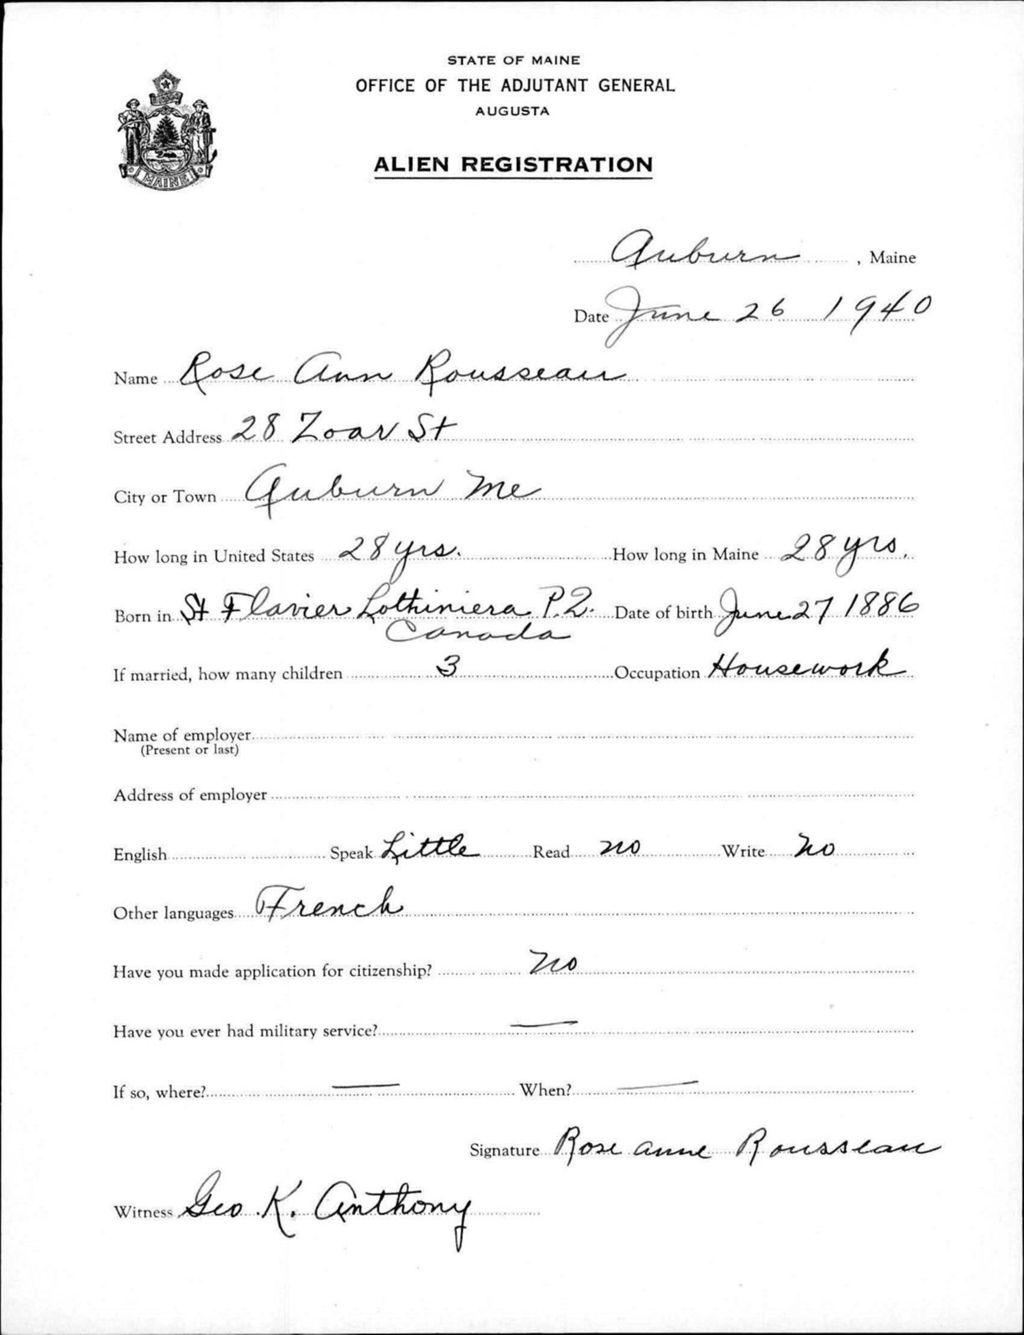 STATE OF MAINE
OFFICE OF THE ADJUTANT GENERAL
AUGUSTA
ALIEN REGISTRATION
MAINE
Auburn, Maine
Date June 26 1940
Name Rose Ann Rousseau
Street Address 28 Zoar St
City or Town Auburn Me
How long in United States 28 yrs. How long in Maine 28 yrs.
Born in St Flavier Lothiniera P.Q. Date of birth June 27 1886
Canada
If married, how many children 3 Occupation Housework
Name of employer
(Present or last)
Address of employer
English Speak Little Read no Write no
Other languages French
Have you made application for citizenship? no
Have you ever had military service? —
If so, where? — When? —
Signature Rose anne Rousseau
Witness Geo K. Anthony